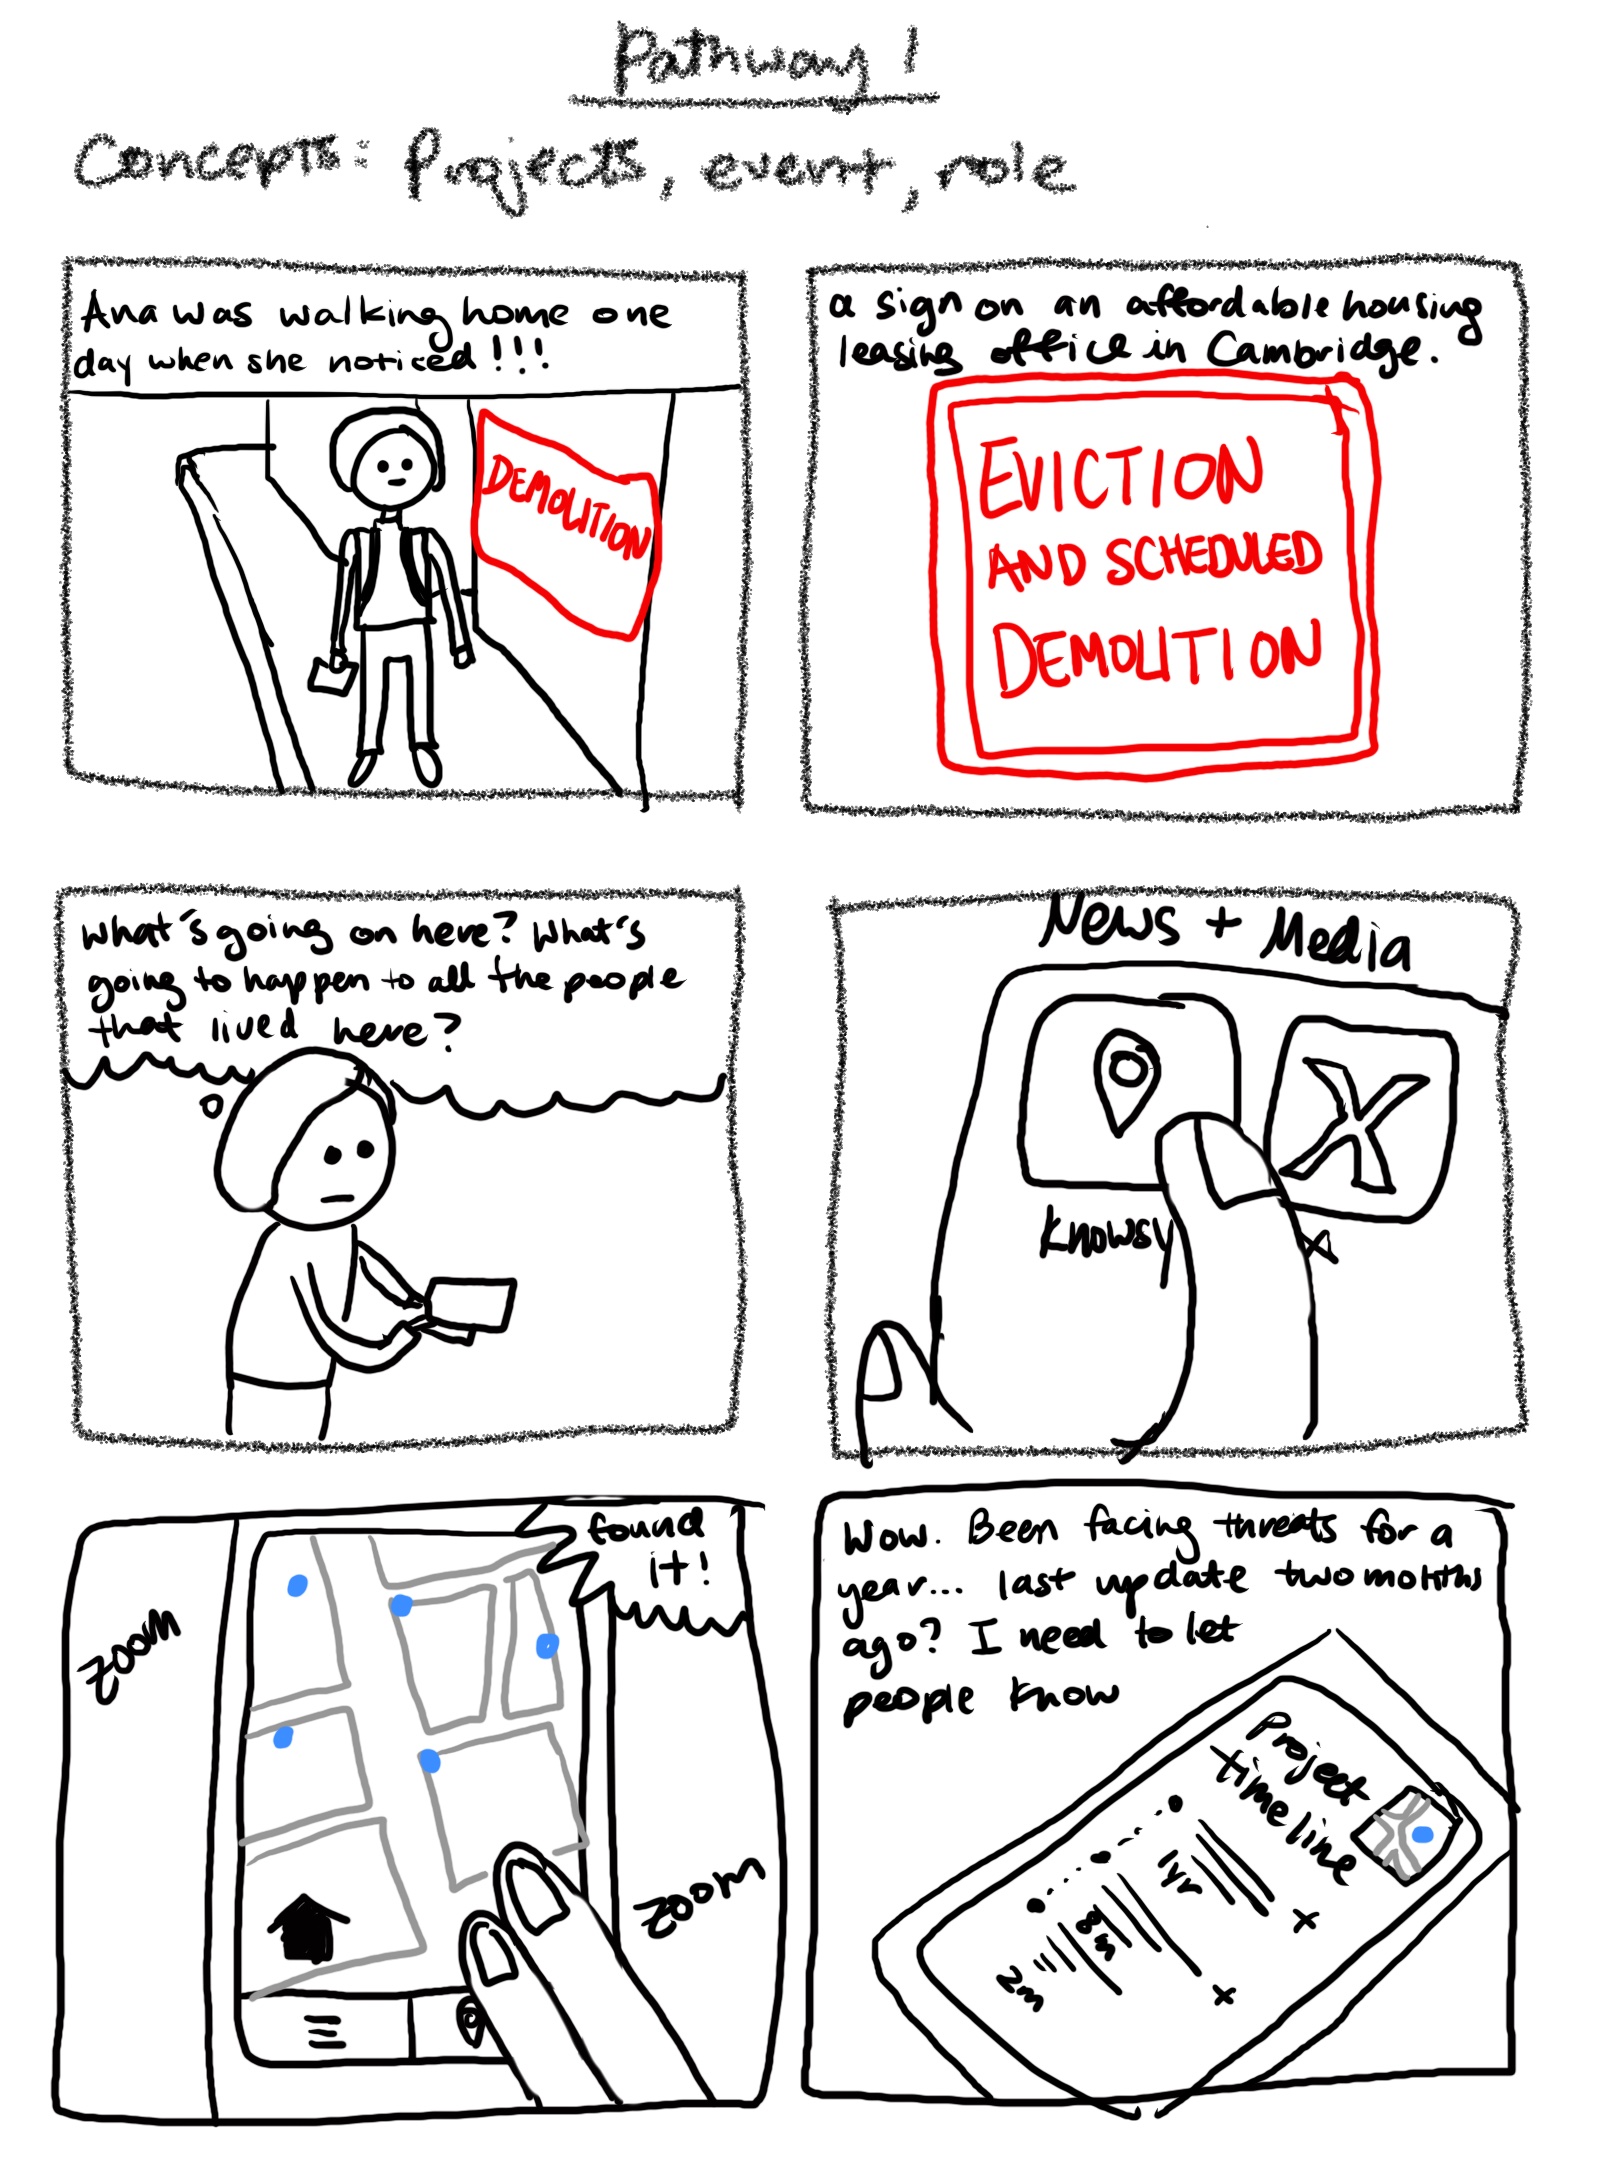 Pathway 1
Concepts: Projects, event, role
Ana was walking home one
day when she noticed!!!
DEMOLITION
a sign on an affordable housing
leasing office in Cambridge.
EVICTION
AND SCHEDULED
DEMOLITION
What's going on here? What's
going to happen to all the people
that lived here?
News + Media
X
Knowsy
X
found
it!
zoom
zoom
Wow. Been facing threats for a
year... last update two months
ago? I need to let
people know
Project
timeline
1yr
8m
2m